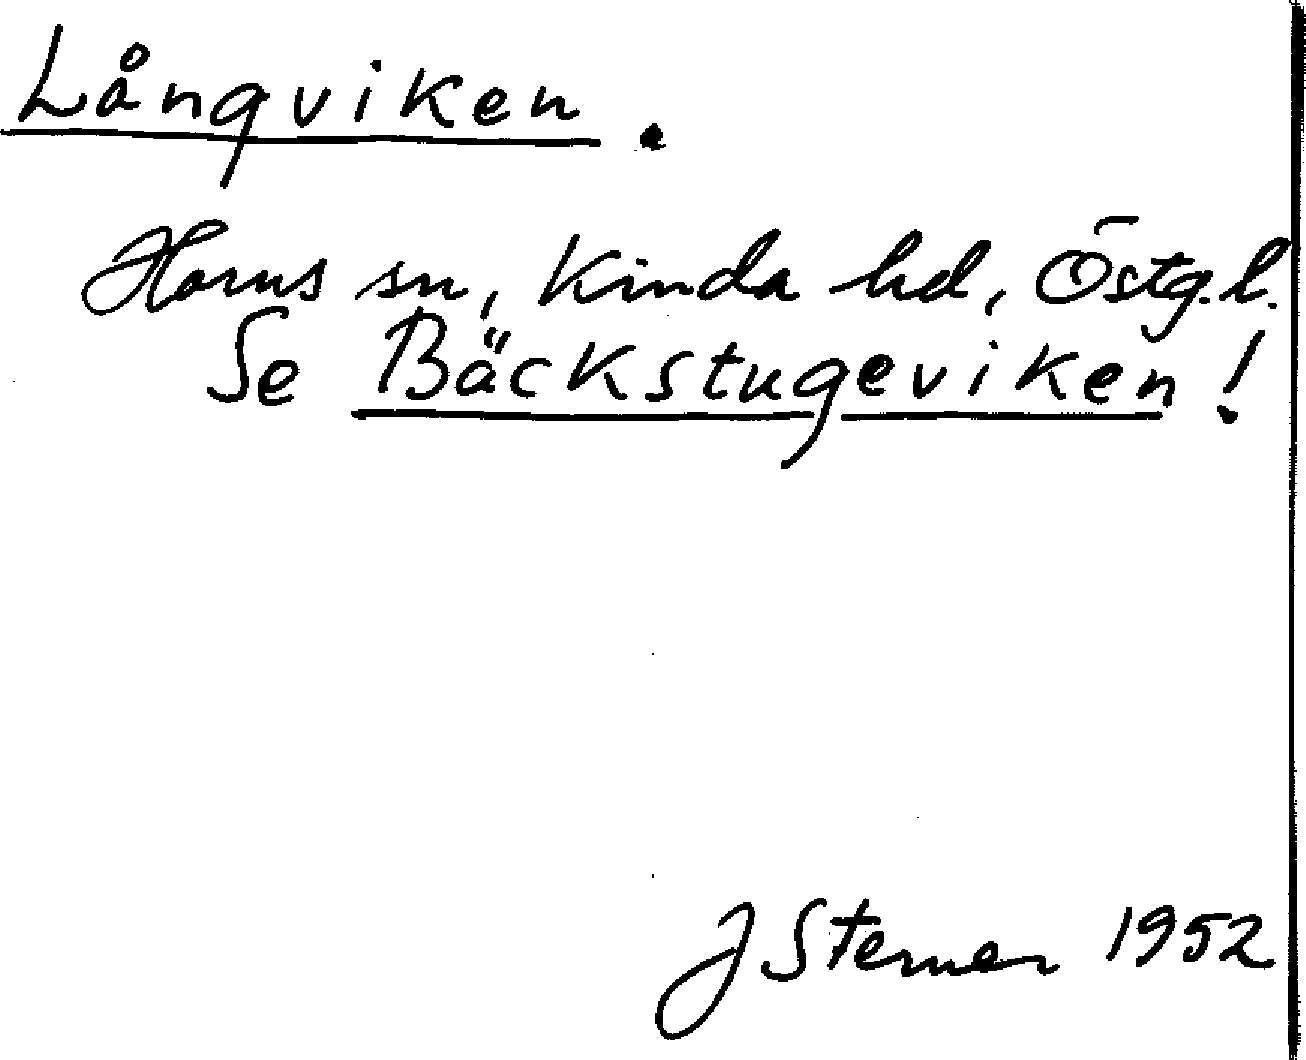 Långviken.
Horns sn, Kinda hd, Östg. l.
Se Bäckstugeviken!
J Sterner 1952